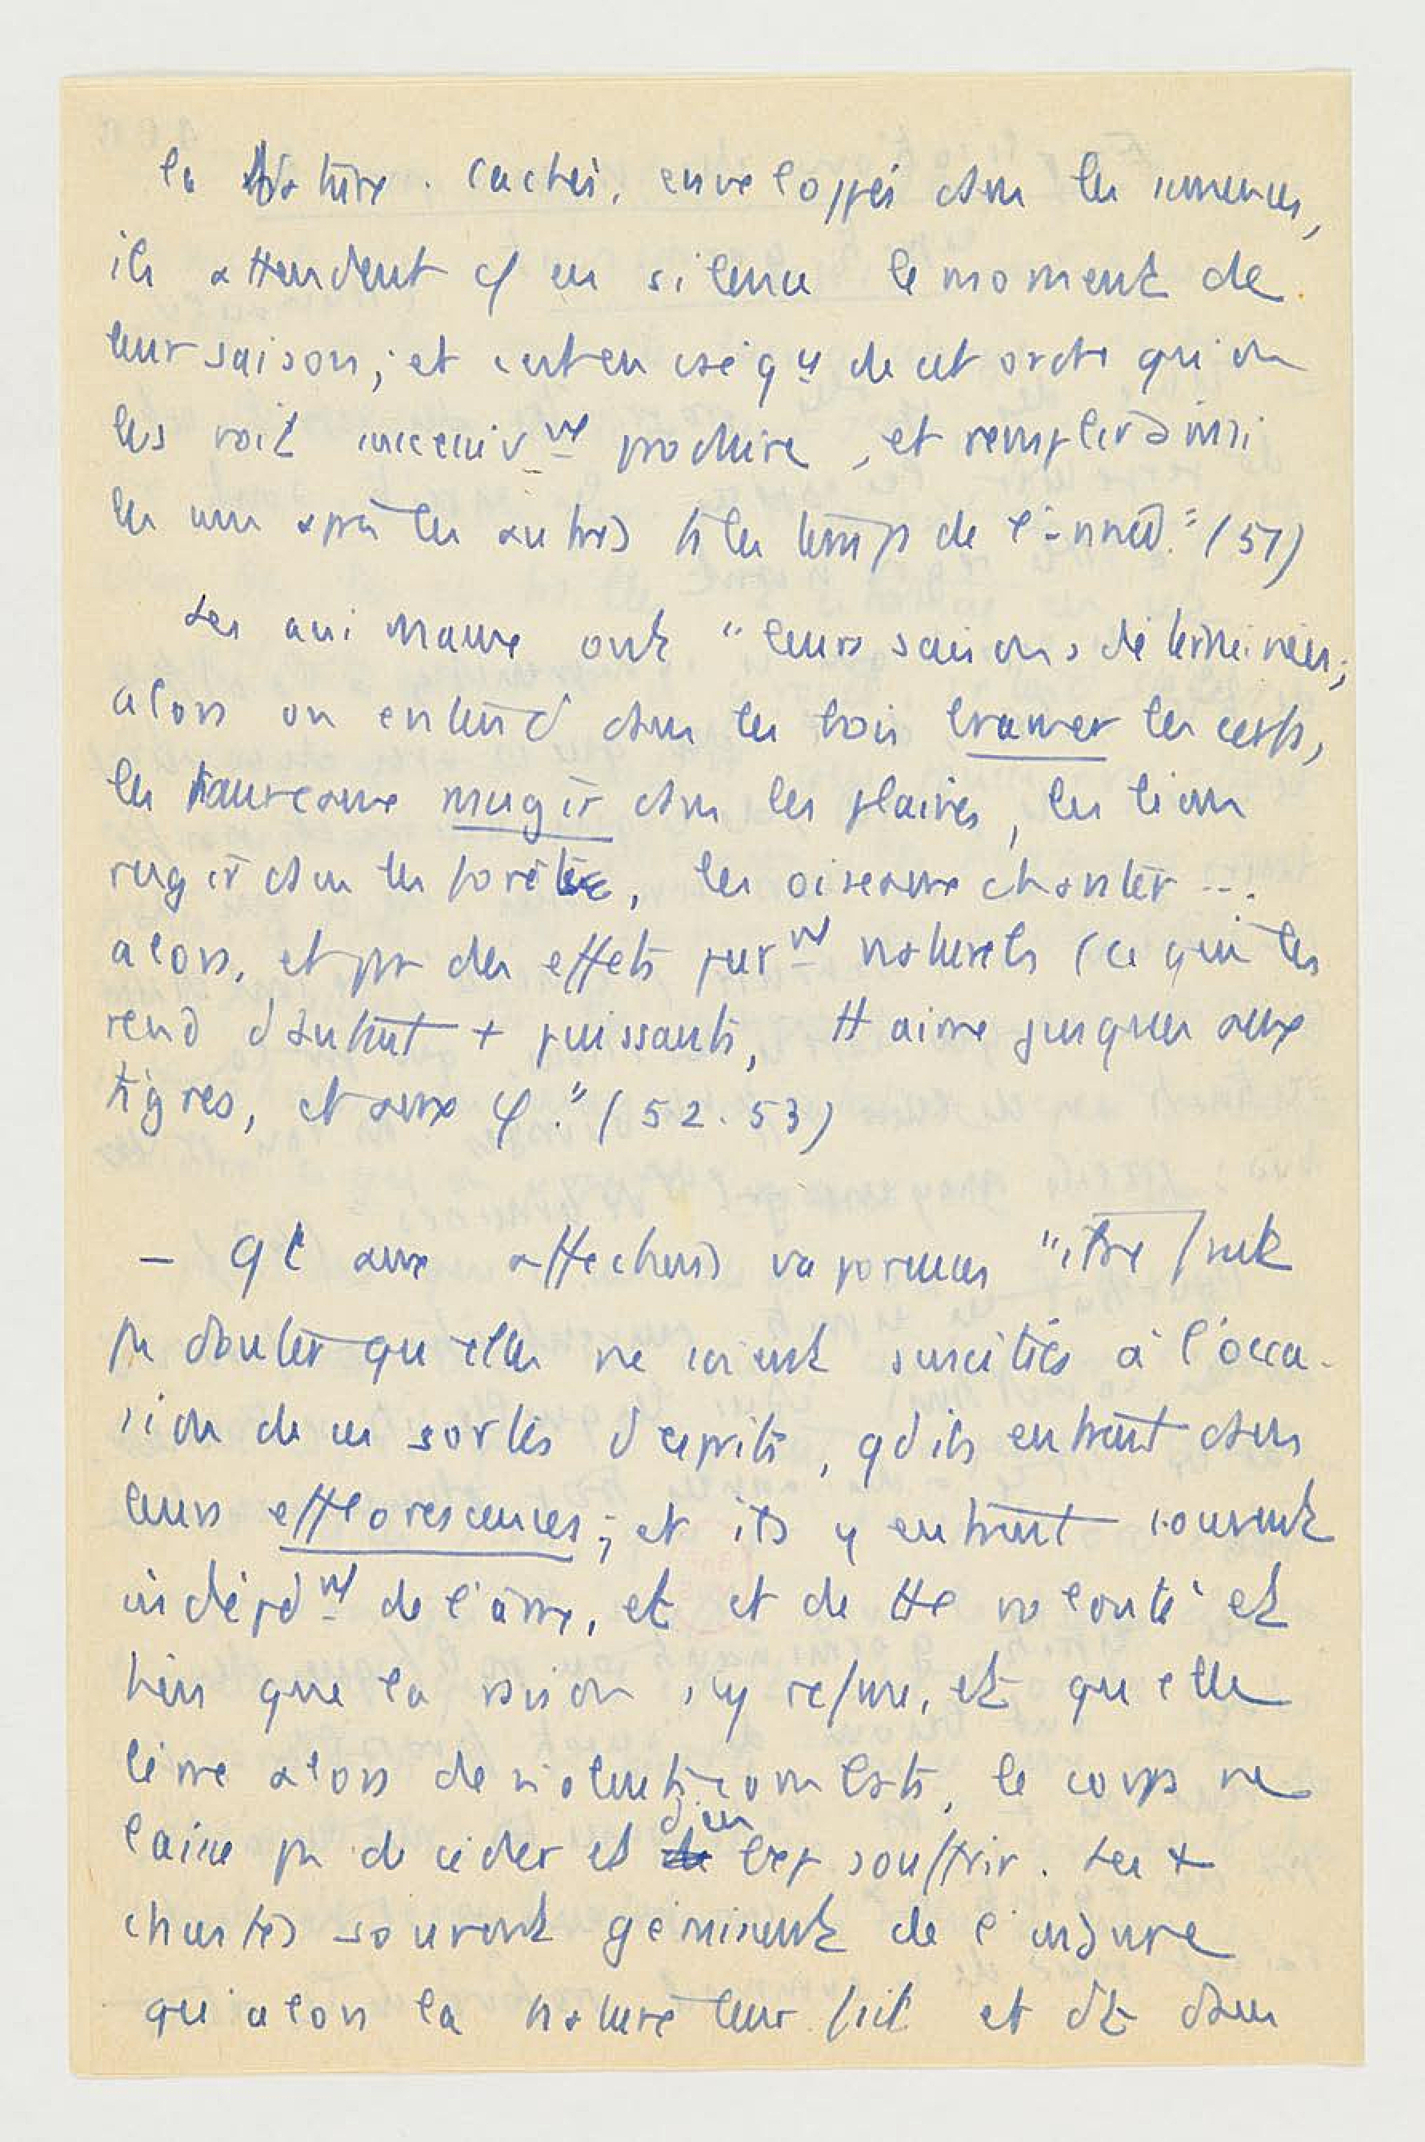 la Nature. Cachés, enveloppés dans les semences,
ils attendent φ en silence le moment de
leur saison ; et c'est en cséq de cet ordre qu'on
les voit successivt produire, et remplir ainsi
les uns après les autres ts les temps de l'année." (51)
Les animaux ont "leurs saisons déterminées ;
alors on entend dans les bois bramer les cerfs,
les taureaux mugir dans les plaines, les lions
rugir dans les forêts, les oiseaux chanter ...
alors, et par des effets purnt naturels (ce qui les
rend d'autant + puissants, tt aime jusques aux
tigres, et aux φ." (52.53)
– Qt aux affections vaporeuses "il ne faut
pas douter qu'elles ne soient suscitées à l'occa-
sion de ces sortes d'esprits, qd ils entrent dans
leurs efflorescences ; et ils y entrent souvent
indépdnt de l'âme, et et de tte volonté et
bien que la raison s'y refuse, et qu'elle
livre alors de violents combats, le corps ne
laisse pas de céder et d'en souffrir. Les +
chastes souvent gémissent de l'injure
qu'alors la nature leur fait et dt dans